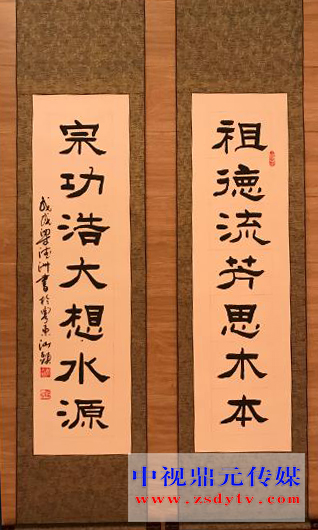 祖德流芳思木本
宗功浩大想水源
戊戌梁
書於粵東汕頭
中视鼎元传媒
www.zsdytv.com